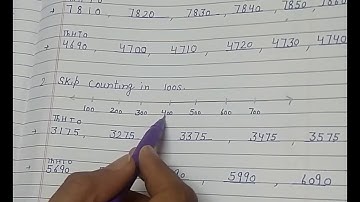 ThHTO
7810, 7820, 7830, 7840, 7850, 7860
ThHTO
4690, 4700, 4710, 4720, 4730, 4740
2. Skip Counting in 100s.
100 200 300 400 500 600 700
ThHTO
3175, 3275, 3375, 3475, 3575
ThHTO
5690, 5990, 6090